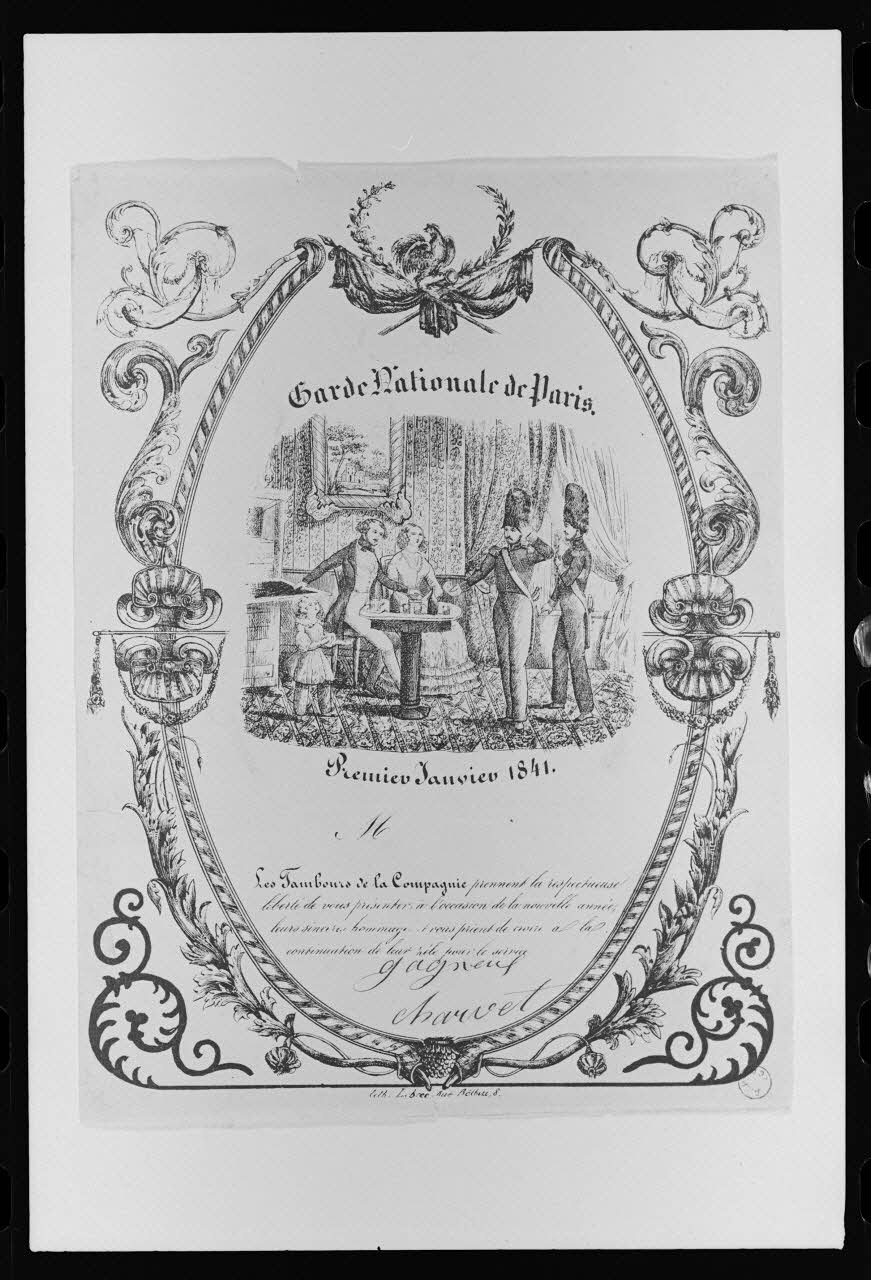 Garde Nationale de Paris.
Premier Janvier 1841.
M
Les Tambours de la Compagnie prennent la respectueuse
liberté de vous présenter, à l'occasion de la nouvelle année,
leurs sincères hommages vous prient de croire à la
continuation de leur zèle pour le service
gagneux
charvet
Lith. Rue 8.